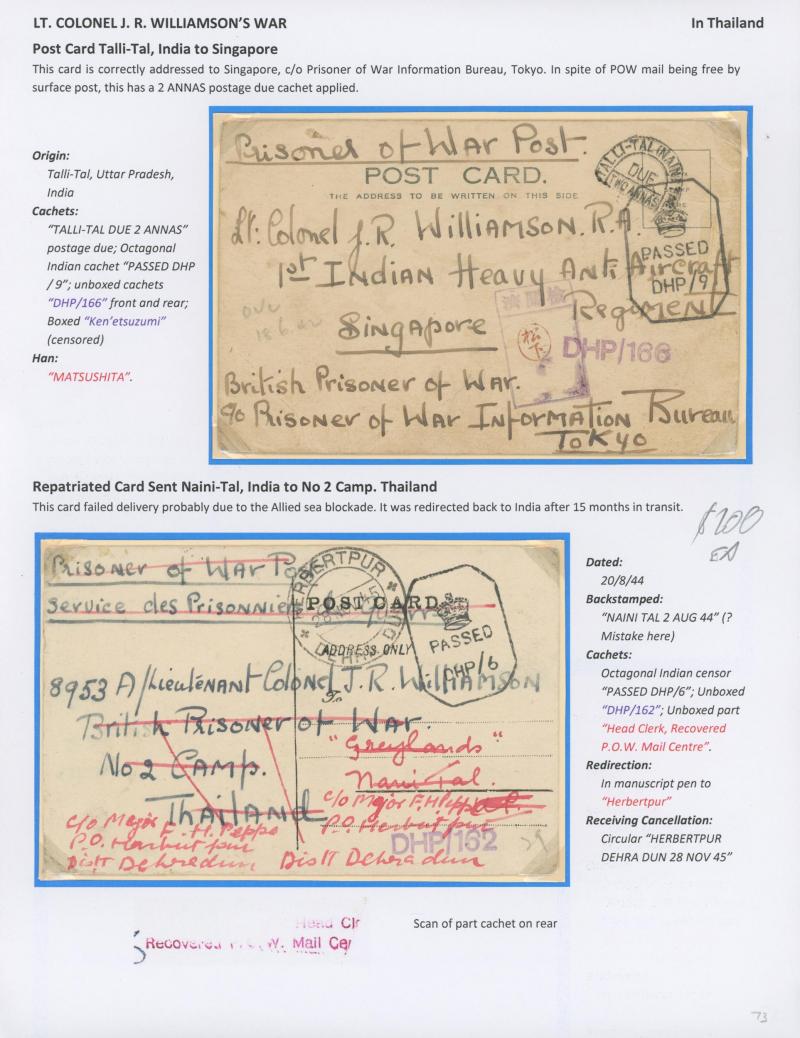 LT. COLONEL J. R. WILLIAMSON'S WAR
In Thailand
Post Card Talli-Tal, India to Singapore
This card is correctly addressed to Singapore, c/o Prisoner of War Information Bureau, Tokyo. In spite of POW mail being free by
surface post, this has a 2 ANNAS postage due cachet applied.
Origin:
Talli-Tal, Uttar Pradesh,
India
Cachets:
"TALLI-TAL DUE 2 ANNAS"
postage due; Octagonal
Indian cachet "PASSED DHP
/ 9"; unboxed cachets
"DHP/166" front and rear;
Boxed "Ken'etsuzumi"
(censored)
Han:
"MATSUSHITA".
Prisoner of War Post.
POST CARD.
THE ADDRESS TO BE WRITTEN ON THIS SIDE
TALLI-TAL (NAINI
DUE
TWO ANNAS
Lt: Colonel J.R. Williamson. R.A.
1st Indian Heavy Anti Aircraft
Regiment
PASSED
DHP/9
18.6.42
Singapore
濟閲檢
松下
DHP/166
British Prisoner of War.
c/o Prisoner of War Information Bureau
Tokyo
Repatriated Card Sent Naini-Tal, India to No 2 Camp. Thailand
This card failed delivery probably due to the Allied sea blockade. It was redirected back to India after 15 months in transit.
$200
EA
Prisoner of War Po
Service des Prisonnie
HERBERTPUR
DEHRA DUN
28 NOV 45
POST CARD
ADDRESS ONLY
To
PASSED
DHP/6
8953 A/Lieutenant Colonel J.R. Williamson
British Prisoner of War.
No 2 Camp.
Thailand
"Greylands"
Naini Tal.
c/o Major F.H.
P.O. Herbutpur
Distt Dehradun
c/o Major
F. H. Peppe
P.O. Harbutpur
Distt Dehradun
DHP/162
29
Dated:
20/8/44
Backstamped:
"NAINI TAL 2 AUG 44" (?
Mistake here)
Cachets:
Octagonal Indian censor
"PASSED DHP/6"; Unboxed
"DHP/162"; Unboxed part
"Head Clerk, Recovered
P.O.W. Mail Centre".
Redirection:
In manuscript pen to
"Herbertpur"
Receiving Cancellation:
Circular "HERBERTPUR
DEHRA DUN 28 NOV 45"
Head Cl
Recovered P.O.W. Mail Ce
Scan of part cachet on rear
73